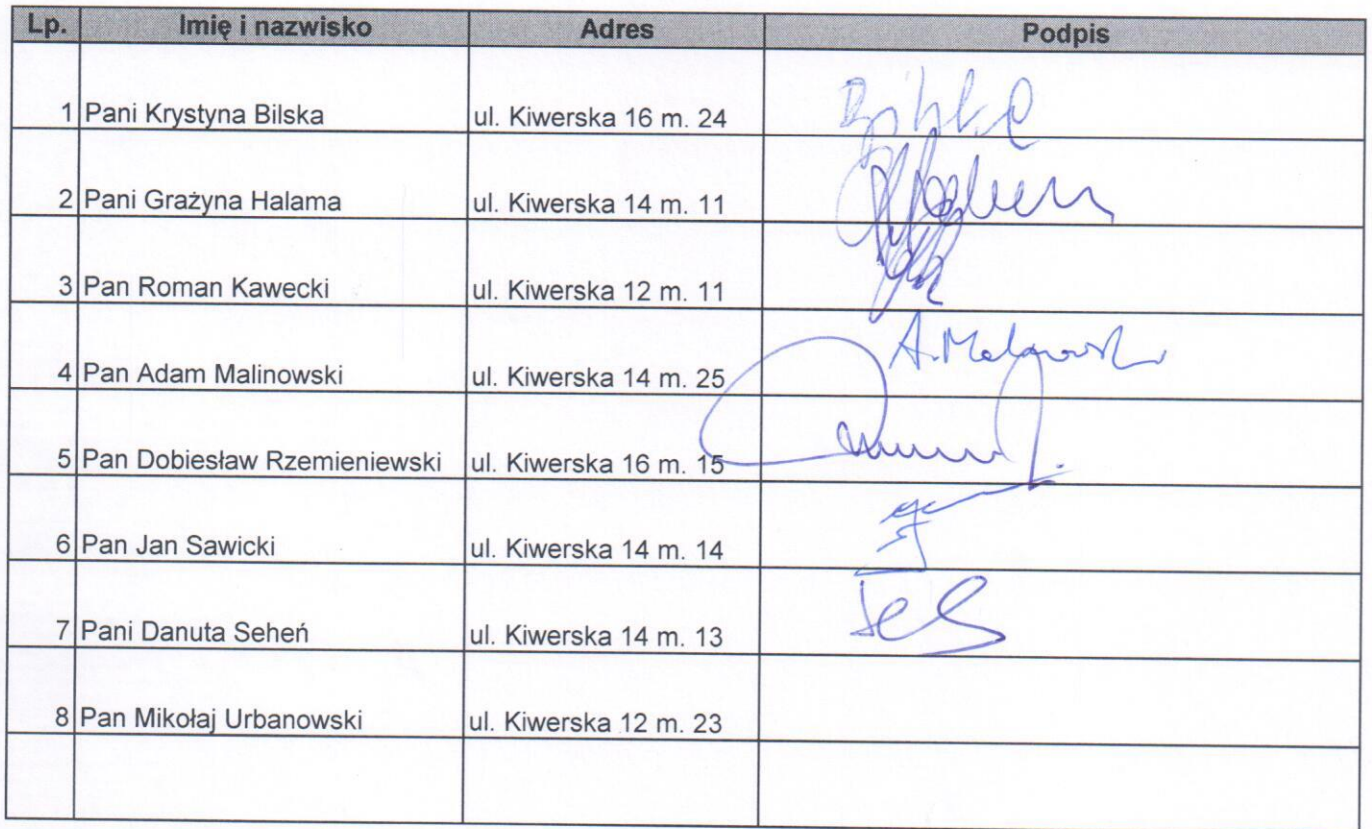 Lp. Imię i nazwisko Adres Podpis
1 Pani Krystyna Bilska ul. Kiwerska 16 m. 24 Bilska
2 Pani Grażyna Halama ul. Kiwerska 14 m. 11
3 Pan Roman Kawecki ul. Kiwerska 12 m. 11
4 Pan Adam Malinowski ul. Kiwerska 14 m. 25 A. Malinowski
5 Pan Dobiesław Rzemieniewski ul. Kiwerska 16 m. 15
6 Pan Jan Sawicki ul. Kiwerska 14 m. 14
7 Pani Danuta Seheń ul. Kiwerska 14 m. 13
8 Pan Mikołaj Urbanowski ul. Kiwerska 12 m. 23